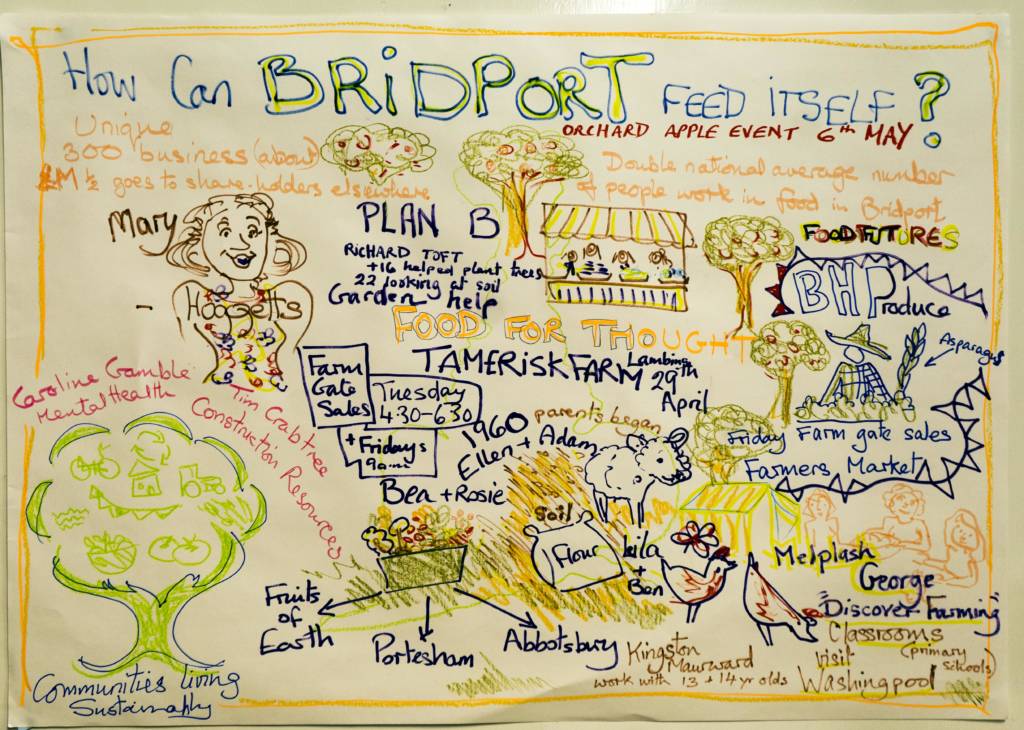 How Can BRIDPORT FEED ITSELF?
ORCHARD APPLE EVENT 6th MAY
Unique
300 business (about)
£M ½ goes to share-holders elsewhere
Double national average number
of people work in food in Bridport
Mary
Hoosetts
PLAN B
RICHARD TOFT
+16 helped plant trees
22 looking at soil
Garden help
FOOD FUTURES
BHProduce
Asparagus
Friday Farm gate sales
Farmers Market
FOOD FOR THOUGHT
TAMERISK FARM
Lambing
29th
April
Farm
Gate
Sales
Tuesday
4:30-6:30
+ Fridays
9am
1960
parents began
Ellen + Adam
Bea + Rosie
Caroline Gamble
Mental Health
Tim Crabtree
Construction Resources
Soil
Flour
+
Ben
Fruits
of
Earth
Portesham
Abbotsbury
Melplash
George
"Discover Farming"
Classrooms
(primary
schools)
Visit
Washingpool
Kingston
Maurward
work with 13 + 14 yr olds
Communities living
Sustainably